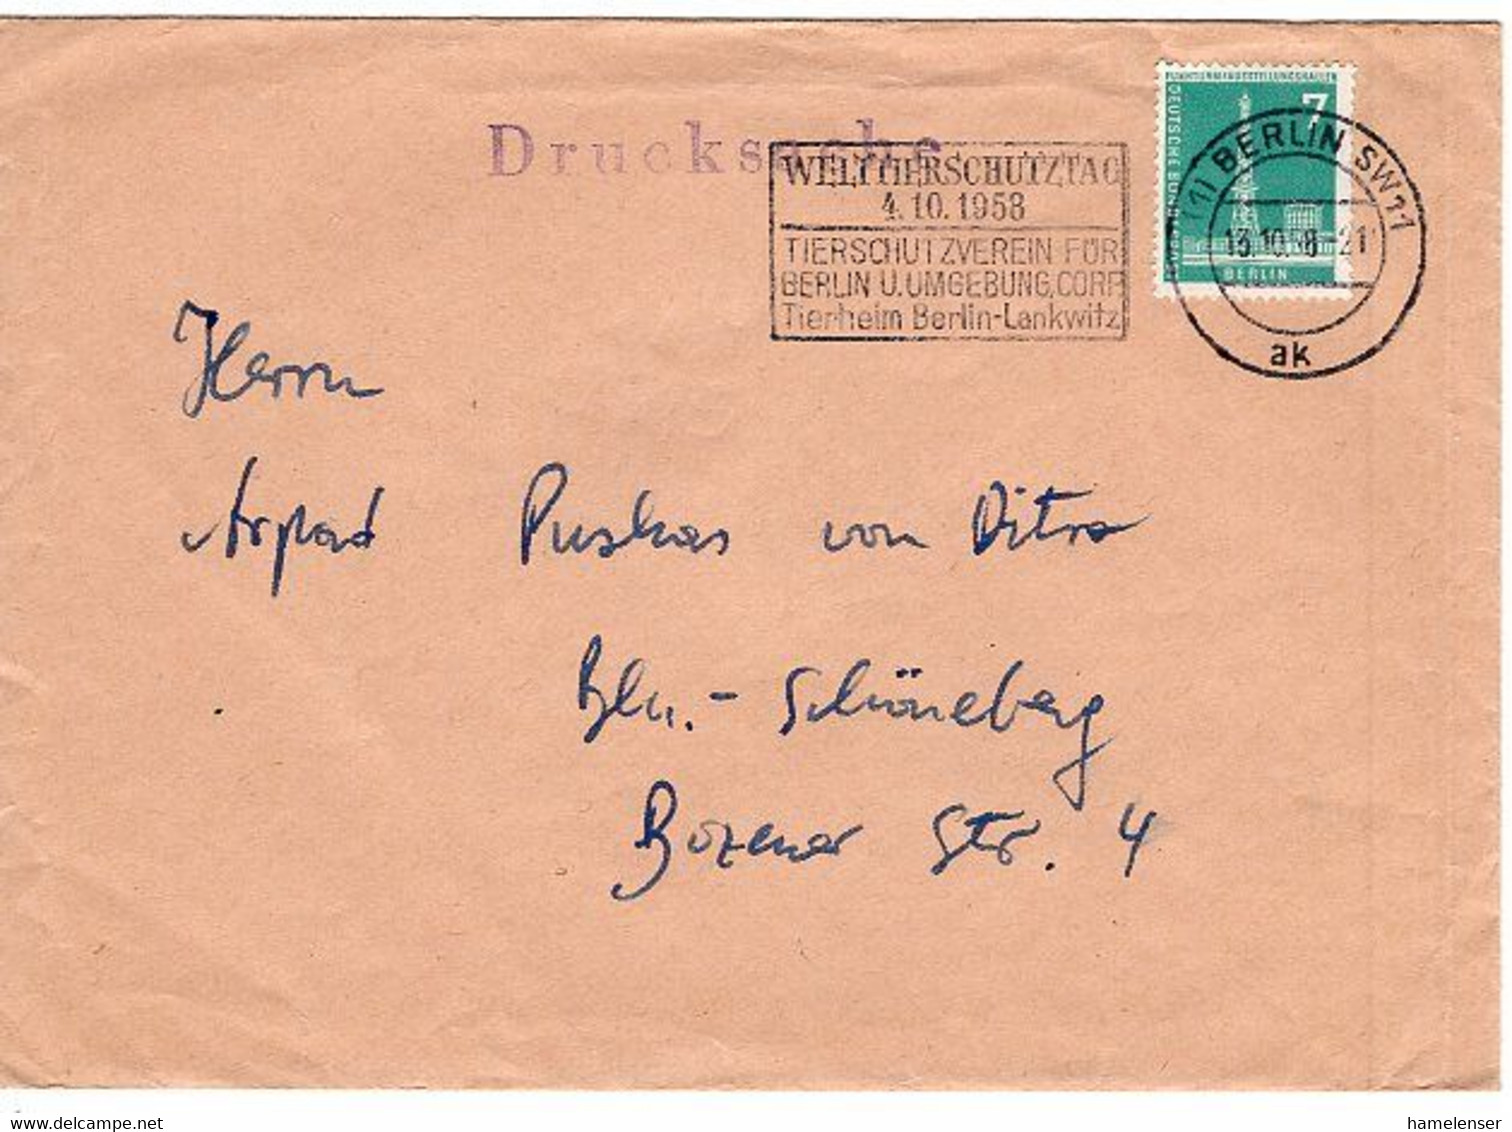 Drucksache
WELTTIERSCHUTZTAG
4.10.1958
TIERSCHUTZVEREIN FÜR
BERLIN U.UMGEBUNG,CORP
Tierheim Berlin-Lankwitz
7
DEUTSCHE BUNDESPOST
BERLIN
(1) BERLIN SW11
13.10.58-21
ak
Herrn
Arpad Puskas von Ditro
Bln.- Schöneberg
Bozener Str. 4
www.delcampe.net
hamelenser